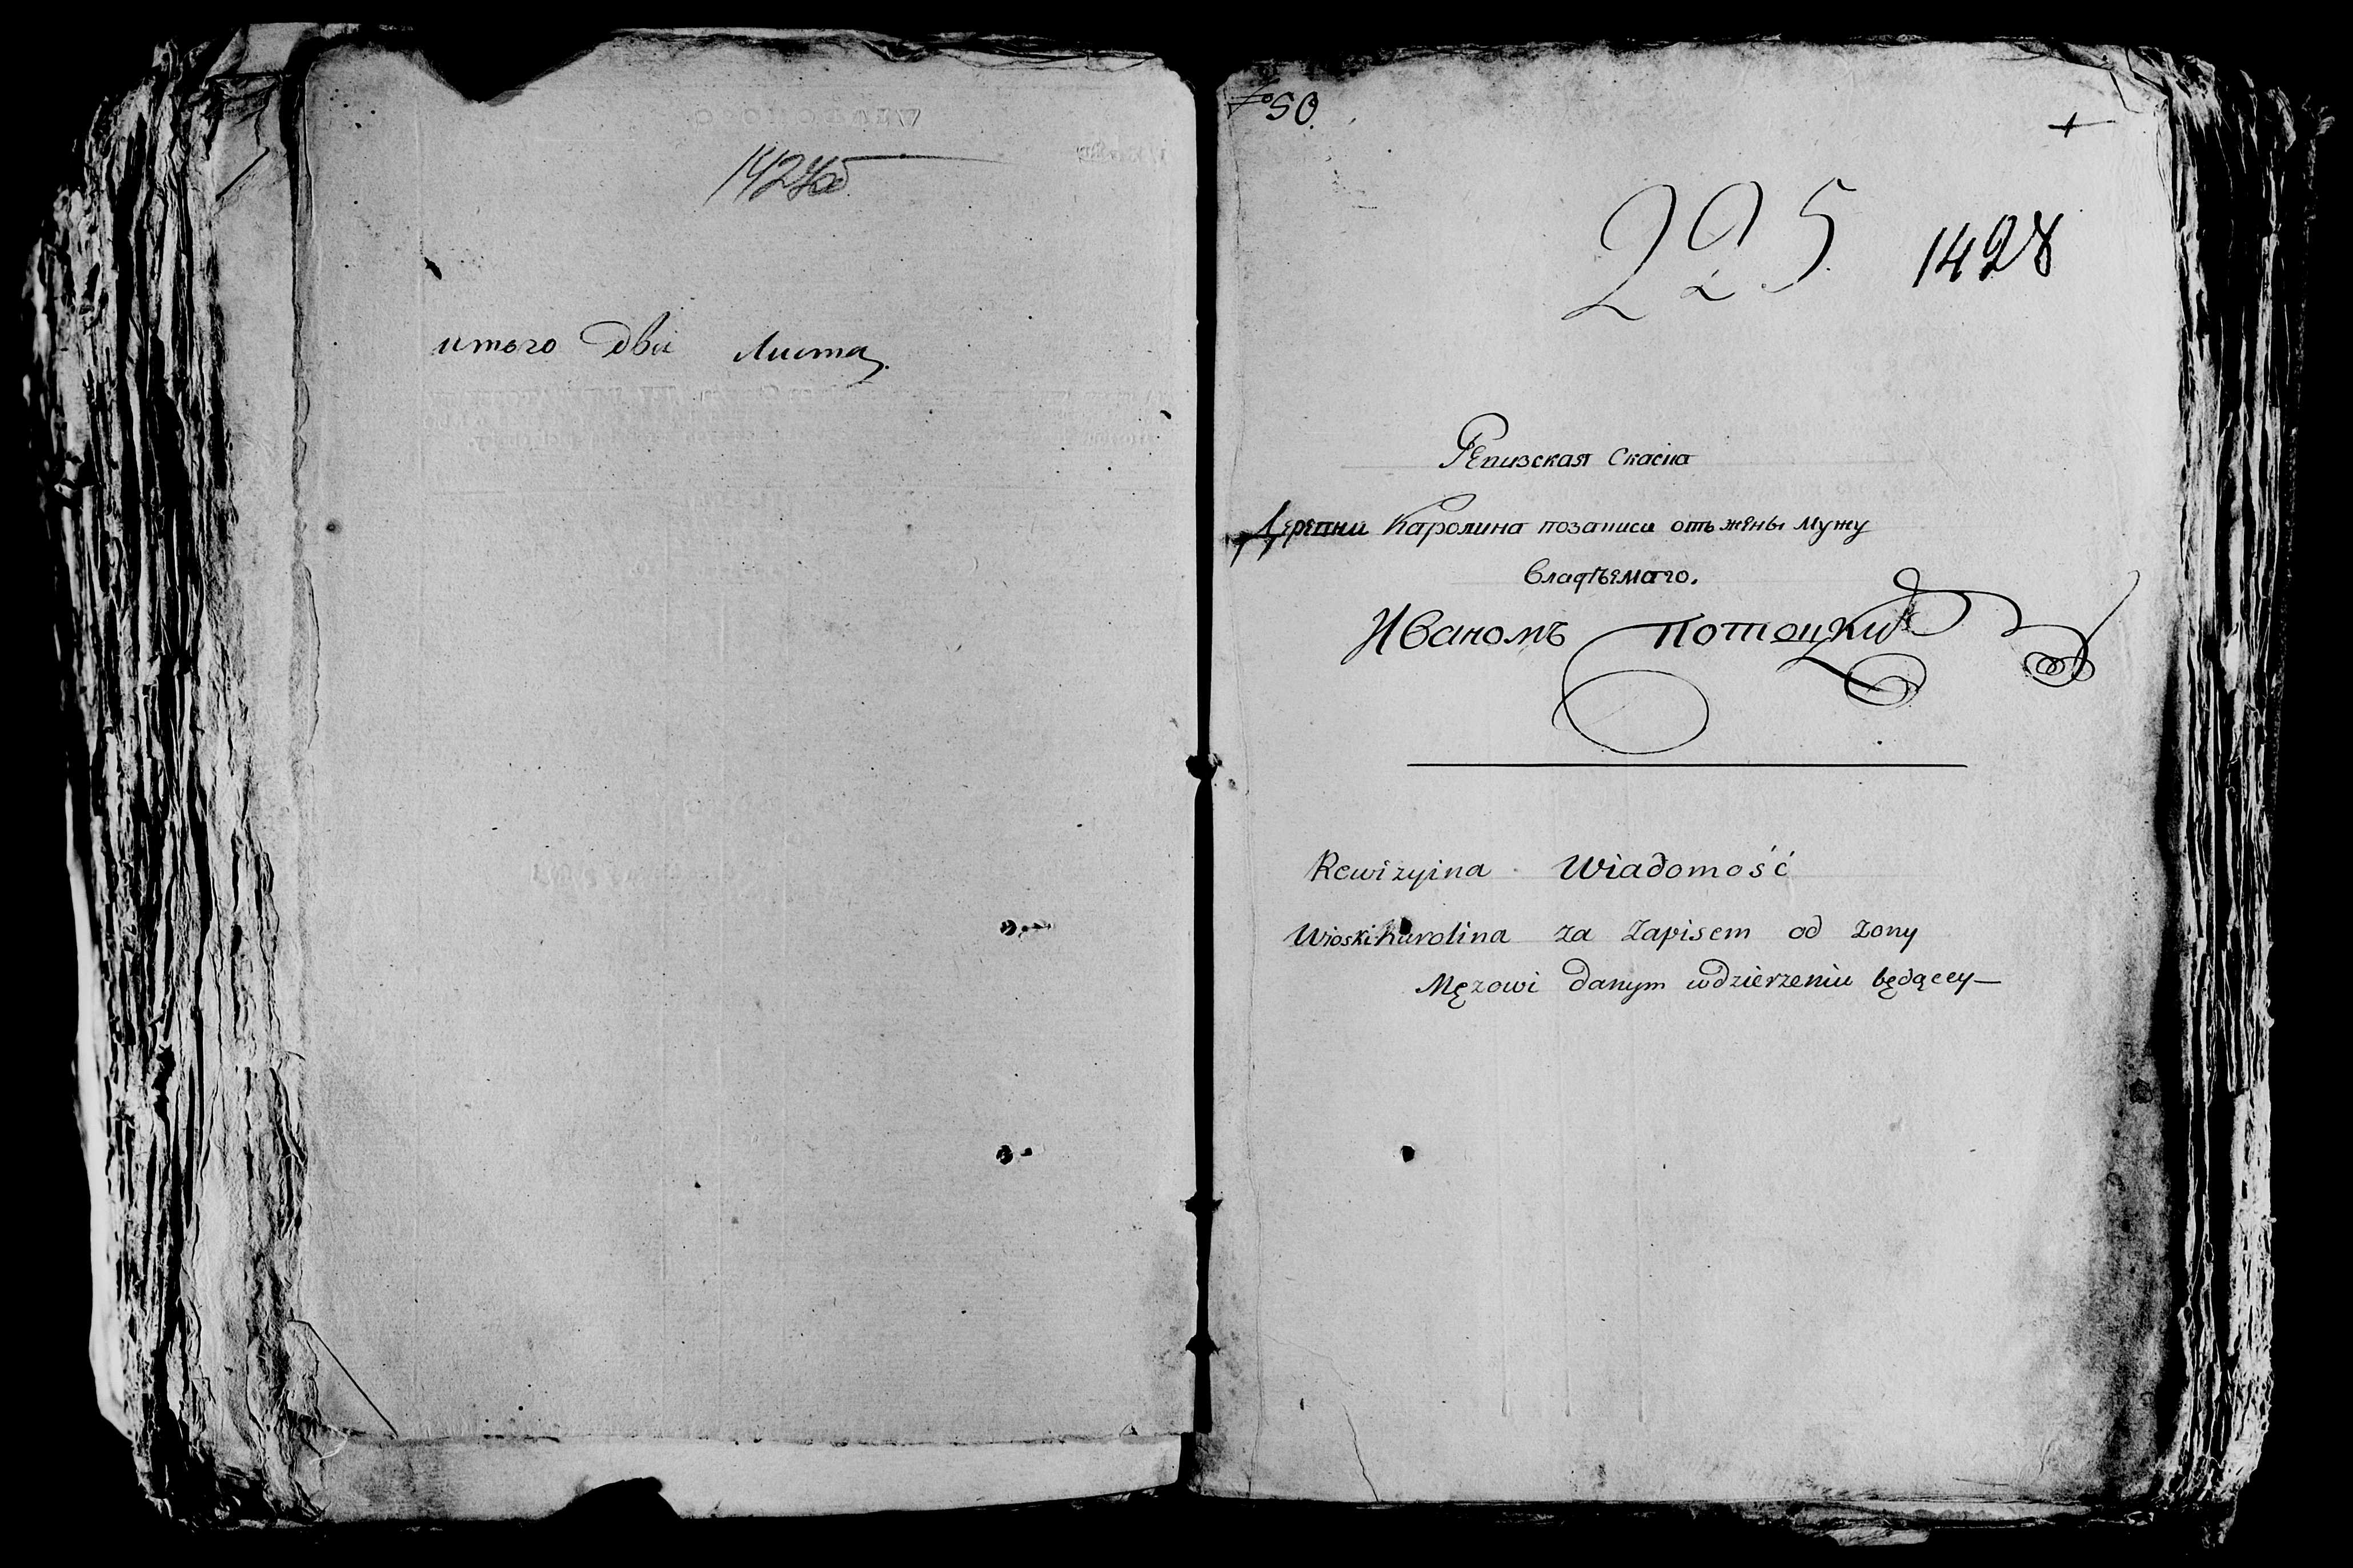 1427об
итого два Листа.
№ 50.
225. 1428
Ревизская Скаска
Деревни Каролина позаписи отъ жены мужу
владѣемаго.
Иваномъ Потоцки
Rewizyina Wiadomość
Wioski Karolina za Zapisem od Zony
Męzowi danym wdzierzeniu będącey—